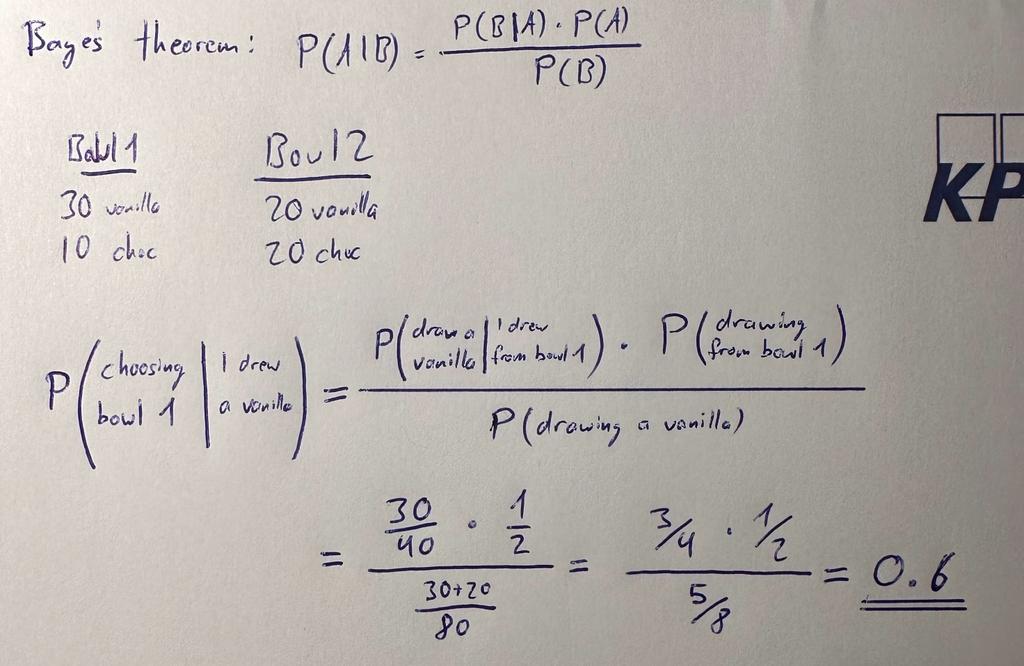 Baye's theorem: P(A|B) = P(B|A) · P(A) / P(B)
KP
Bowl 1 Bowl 2
30 vanilla 20 vanilla
10 choc 20 choc
P(choosing bowl 1 | I drew a vanilla) = P(draw a vanilla | I drew from bowl 1) · P(drawing from bowl 1) / P(drawing a vanilla)
= 30/40 · 1/2 / 30+20/80 = 3/4 · 1/2 / 5/8 = 0.6